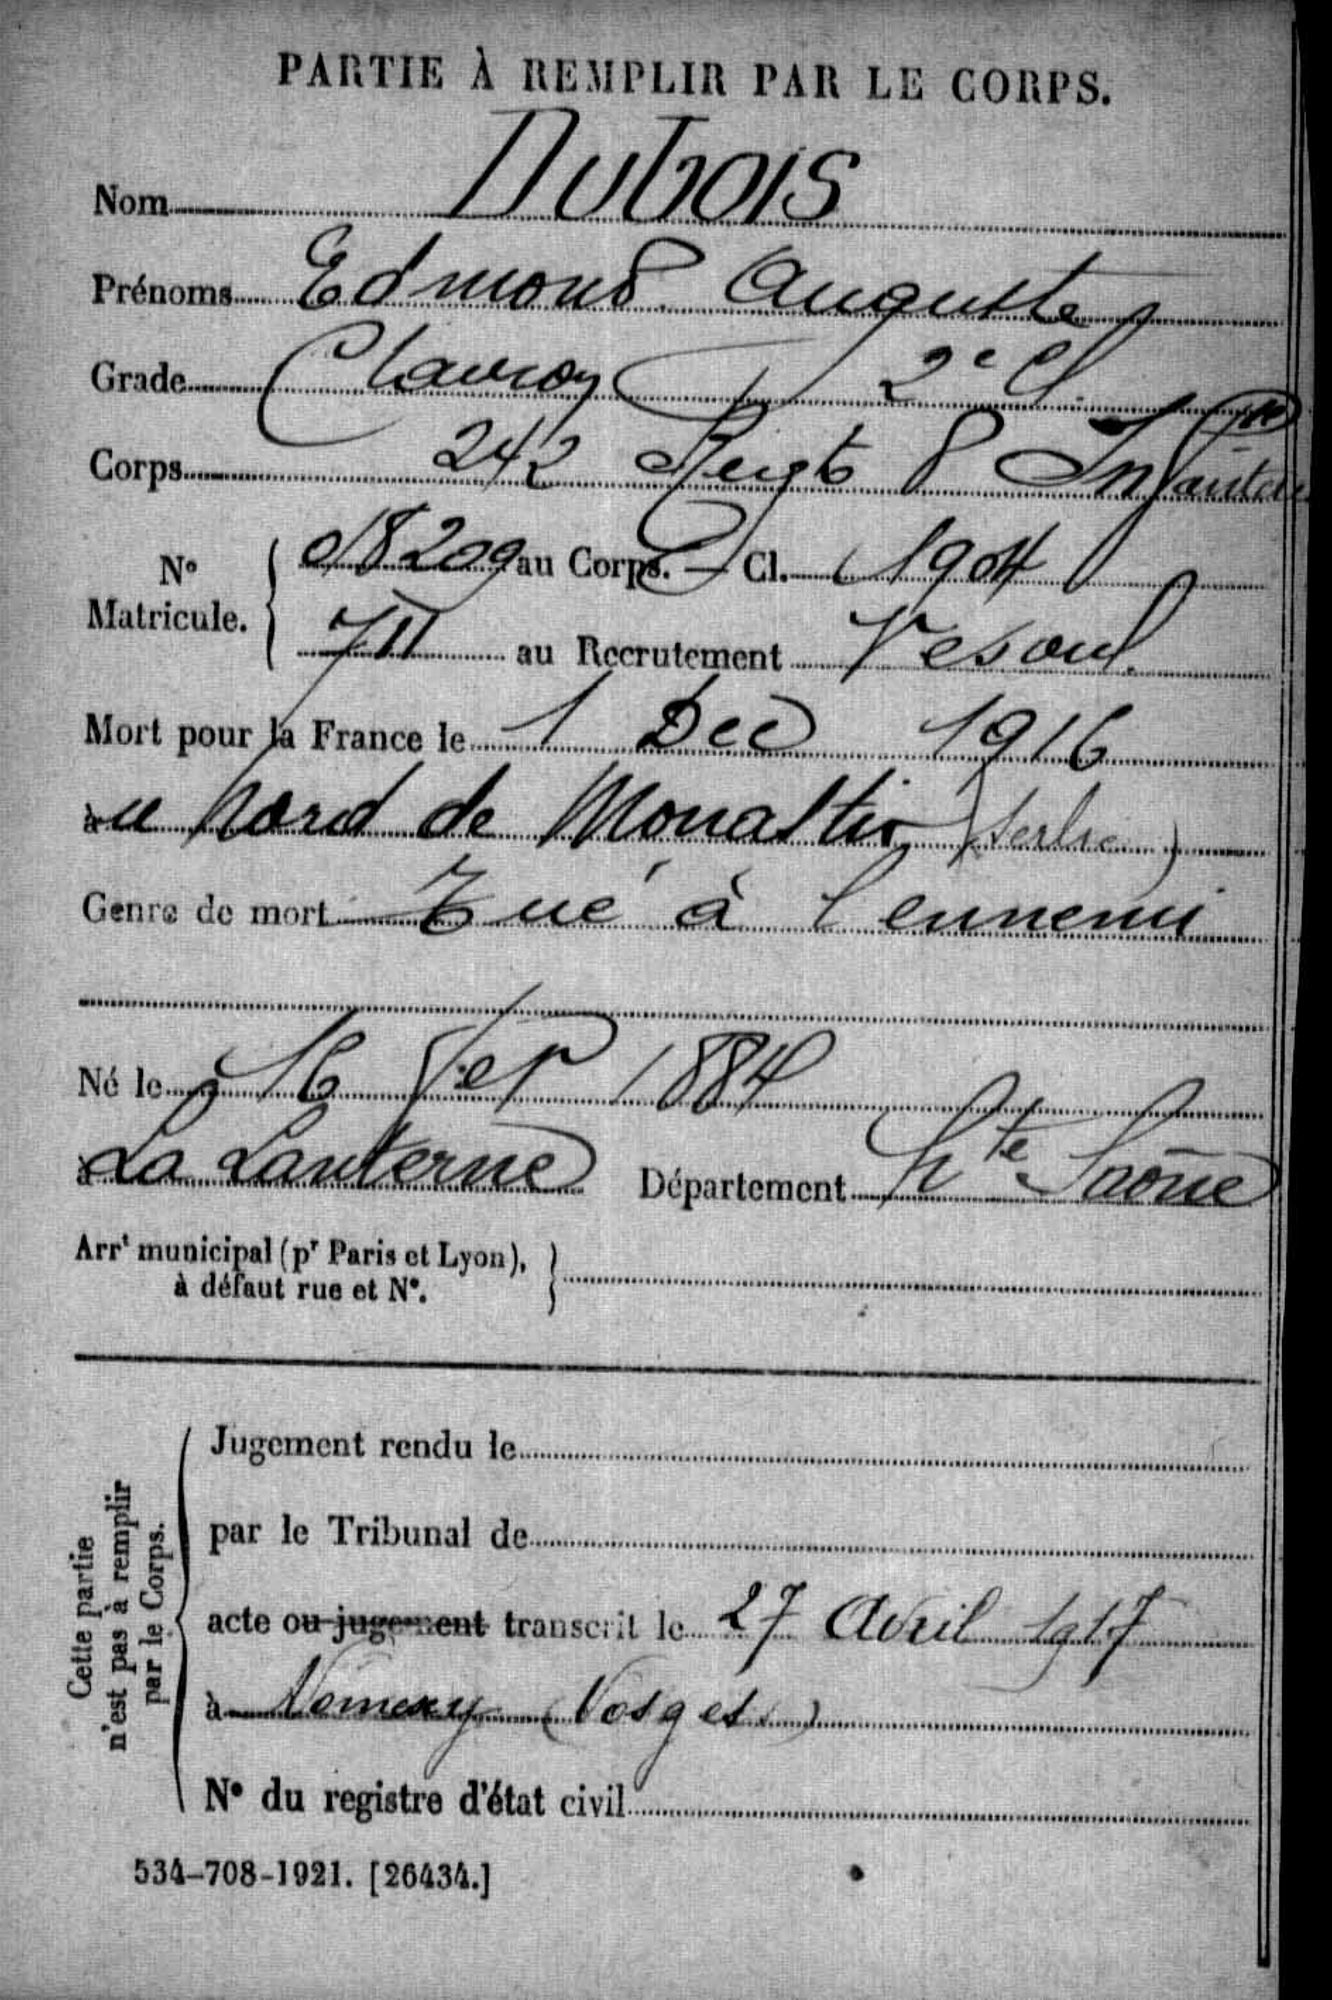 PARTIE À REMPLIR PAR LE CORPS.
Nom Dubois
Prénoms Edmond Auguste
Grade Clairon 2e Cl.
Corps 242 Regt d'Infanterie
No Matricule. { 018209 au Corps. — Cl. 1904
711 au Recrutement Vesoul.
Mort pour la France le 1 Dec 1916
au Nord de Monastir (Serbie)
Genre de mort Tué à l'ennemi
Né le 16 Fer 1884
à La Lanterne Département Hte Saône
Arrt municipal (pr Paris et Lyon), }
à défaut rue et No.
Cette partie
n'est pas à remplir
par le Corps.
Jugement rendu le
par le Tribunal de
acte ou jugement transcrit le 27 Avril 1917
à Nomexy (Vosges)
No du registre d'état civil
534-708-1921. [26434.]